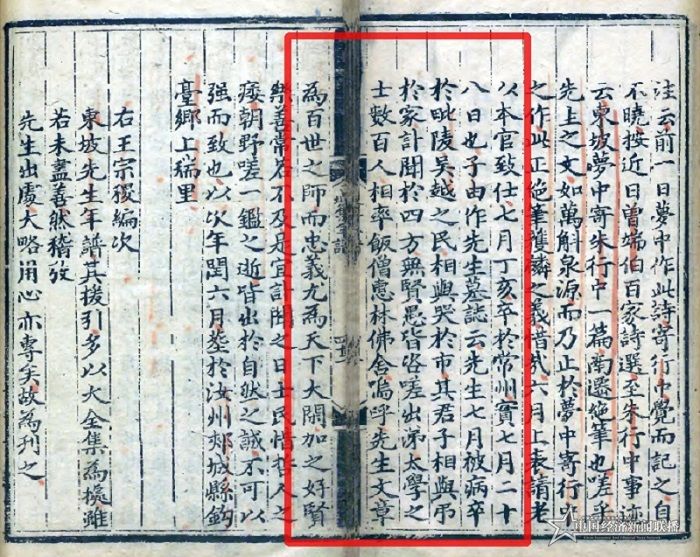 注云前一日夢中作此詩寄行中覺而記之自
不曉按近日曽端伯百家詩選至朱行中事迹
云東坡夢中寄朱行中一篇南遷絕筆也嗟乎
先上之文如萬斛泉源而乃止於夢中寄行
之作此正絕筆獲麟之義惜哉六月上表請老
以本官致仕七月丁亥卒於常州實七月二十
八日也子由作先生墓誌云先生七月被病卒
於毗陵吳越之民相與哭於市其君子相與弔
於家訃聞於四方無賢愚皆咨嗟出涕太學之
士數百人相率飯僧惠林佛舍嗚呼先生文章
為百世之師而忠義尤為天下大閑加之好賢
樂善常若不及是宜訃聞之日士民惜哲人之
痿朝野嗟一鑑之逝皆出於自然之誠不可以
强而致也以次年閏六月塟於汝州郟城縣鈞
臺鄉上瑞里
右王宗稷編次
東坡先生年譜其援引多以大全集為據雖
若未盡善然稽攷
先生出處大略用心亦專矣故為刊之
中国经济新闻联播